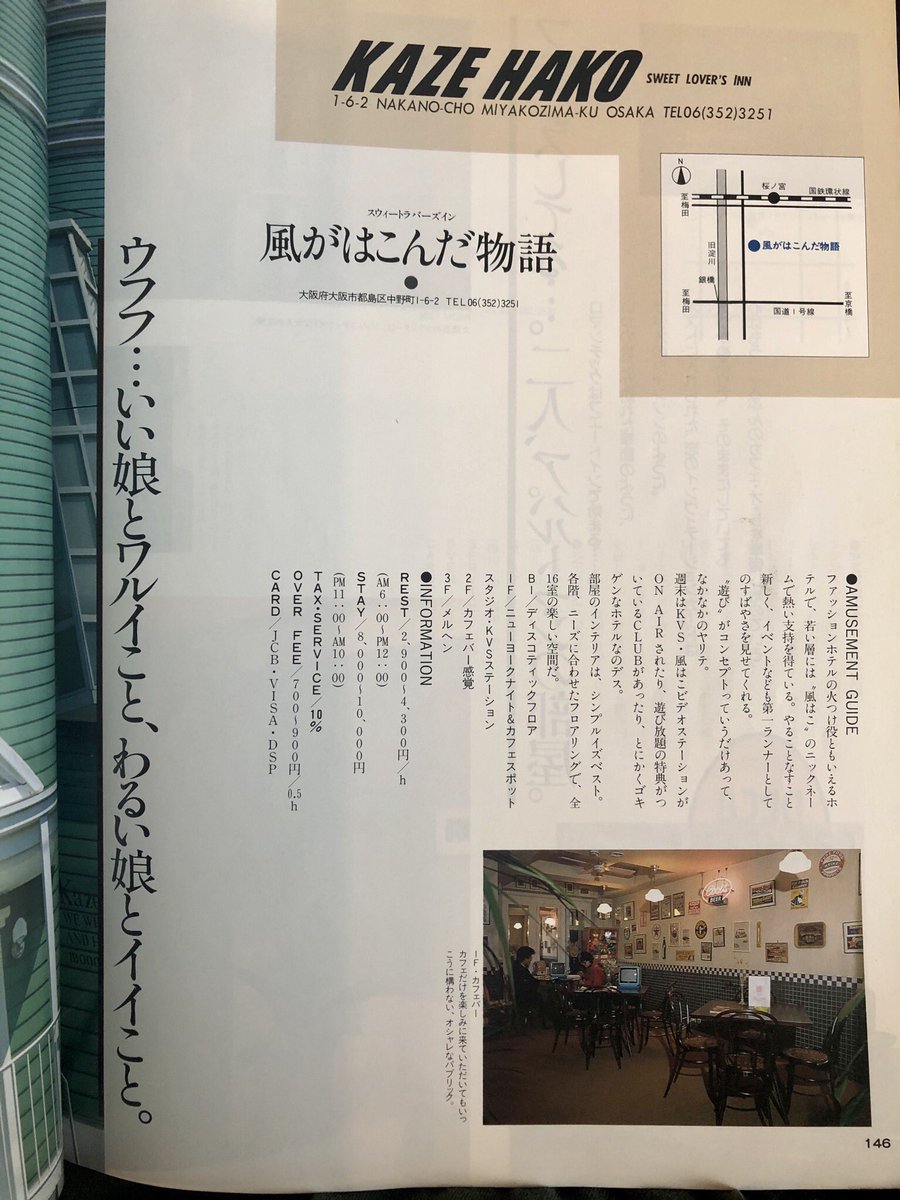 KAZE HAKO SWEET LOVER'S INN
1-6-2 NAKANO-CHO MIYAKOZIMA-KU OSAKA TEL06(352)3251
N
桜ノ宮
国鉄環状線
至梅田
旧淀川
風がはこんだ物語
銀橋
至梅田
国道1号線
至京橋
スウィートラバーズイン
風がはこんだ物語
大阪府大阪市都島区中野町1-6-2 TEL06(352)3251
●AMUSEMENT GUIDE
ファッションホテルの火つけ役ともいえるホ
テルで、若い層には〝風はこ〟のニックネー
ムで熱い支持を得ている。やることなすこと
新しく、イベントなども第一ランナーとして
のすばやさを見せてくれる。
〝遊び〟がコンセプトっていうだけあって、
なかなかのヤリテ。
週末はKVS・風はこビデオステーションが
ON AIRされたり、遊び放題の特典がつ
いているCLUBがあったり、とにかくゴキ
ゲンなホテルなのデス。
部屋のインテリアは、シンプルイズベスト。
各階、ニーズに合わせたフロアリングで、全
16室の楽しい空間だ。
B1/ディスコティックフロア
1F/ニューヨークナイト&カフェスポット
スタジオ・KVSステーション
2F/カフェバー感覚
3F/メルヘン
●INFORMATION
REST/2,900〜4,300円/h
(AM6:00〜PM12:00)
STAY/8,000〜10,000円
(PM11:00〜AM10:00)
TAX・SERVICE/10%
OVER FEE/700〜900円/0.5h
CARD/JCB・VISA・DSP
ウフフ…いい娘とワルイこと、わるい娘とイイこと。
1F・カフェバー
カフェだけを楽しみに来ていただいてもいっ
こうに構わない、オシャレなパブリック。
146